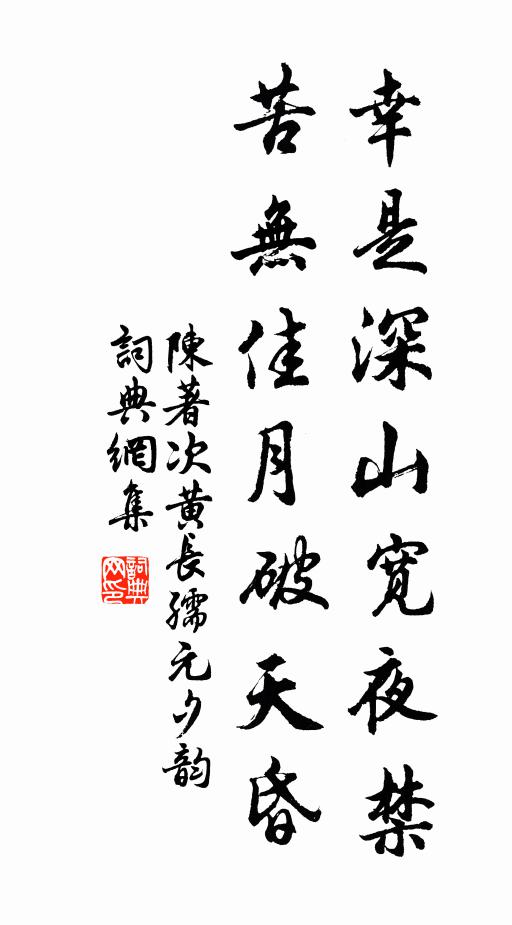 幸是深山寬夜禁
苦無佳月破天昏
陳著次黄長孺元夕韵
詞典網集
詞典网印